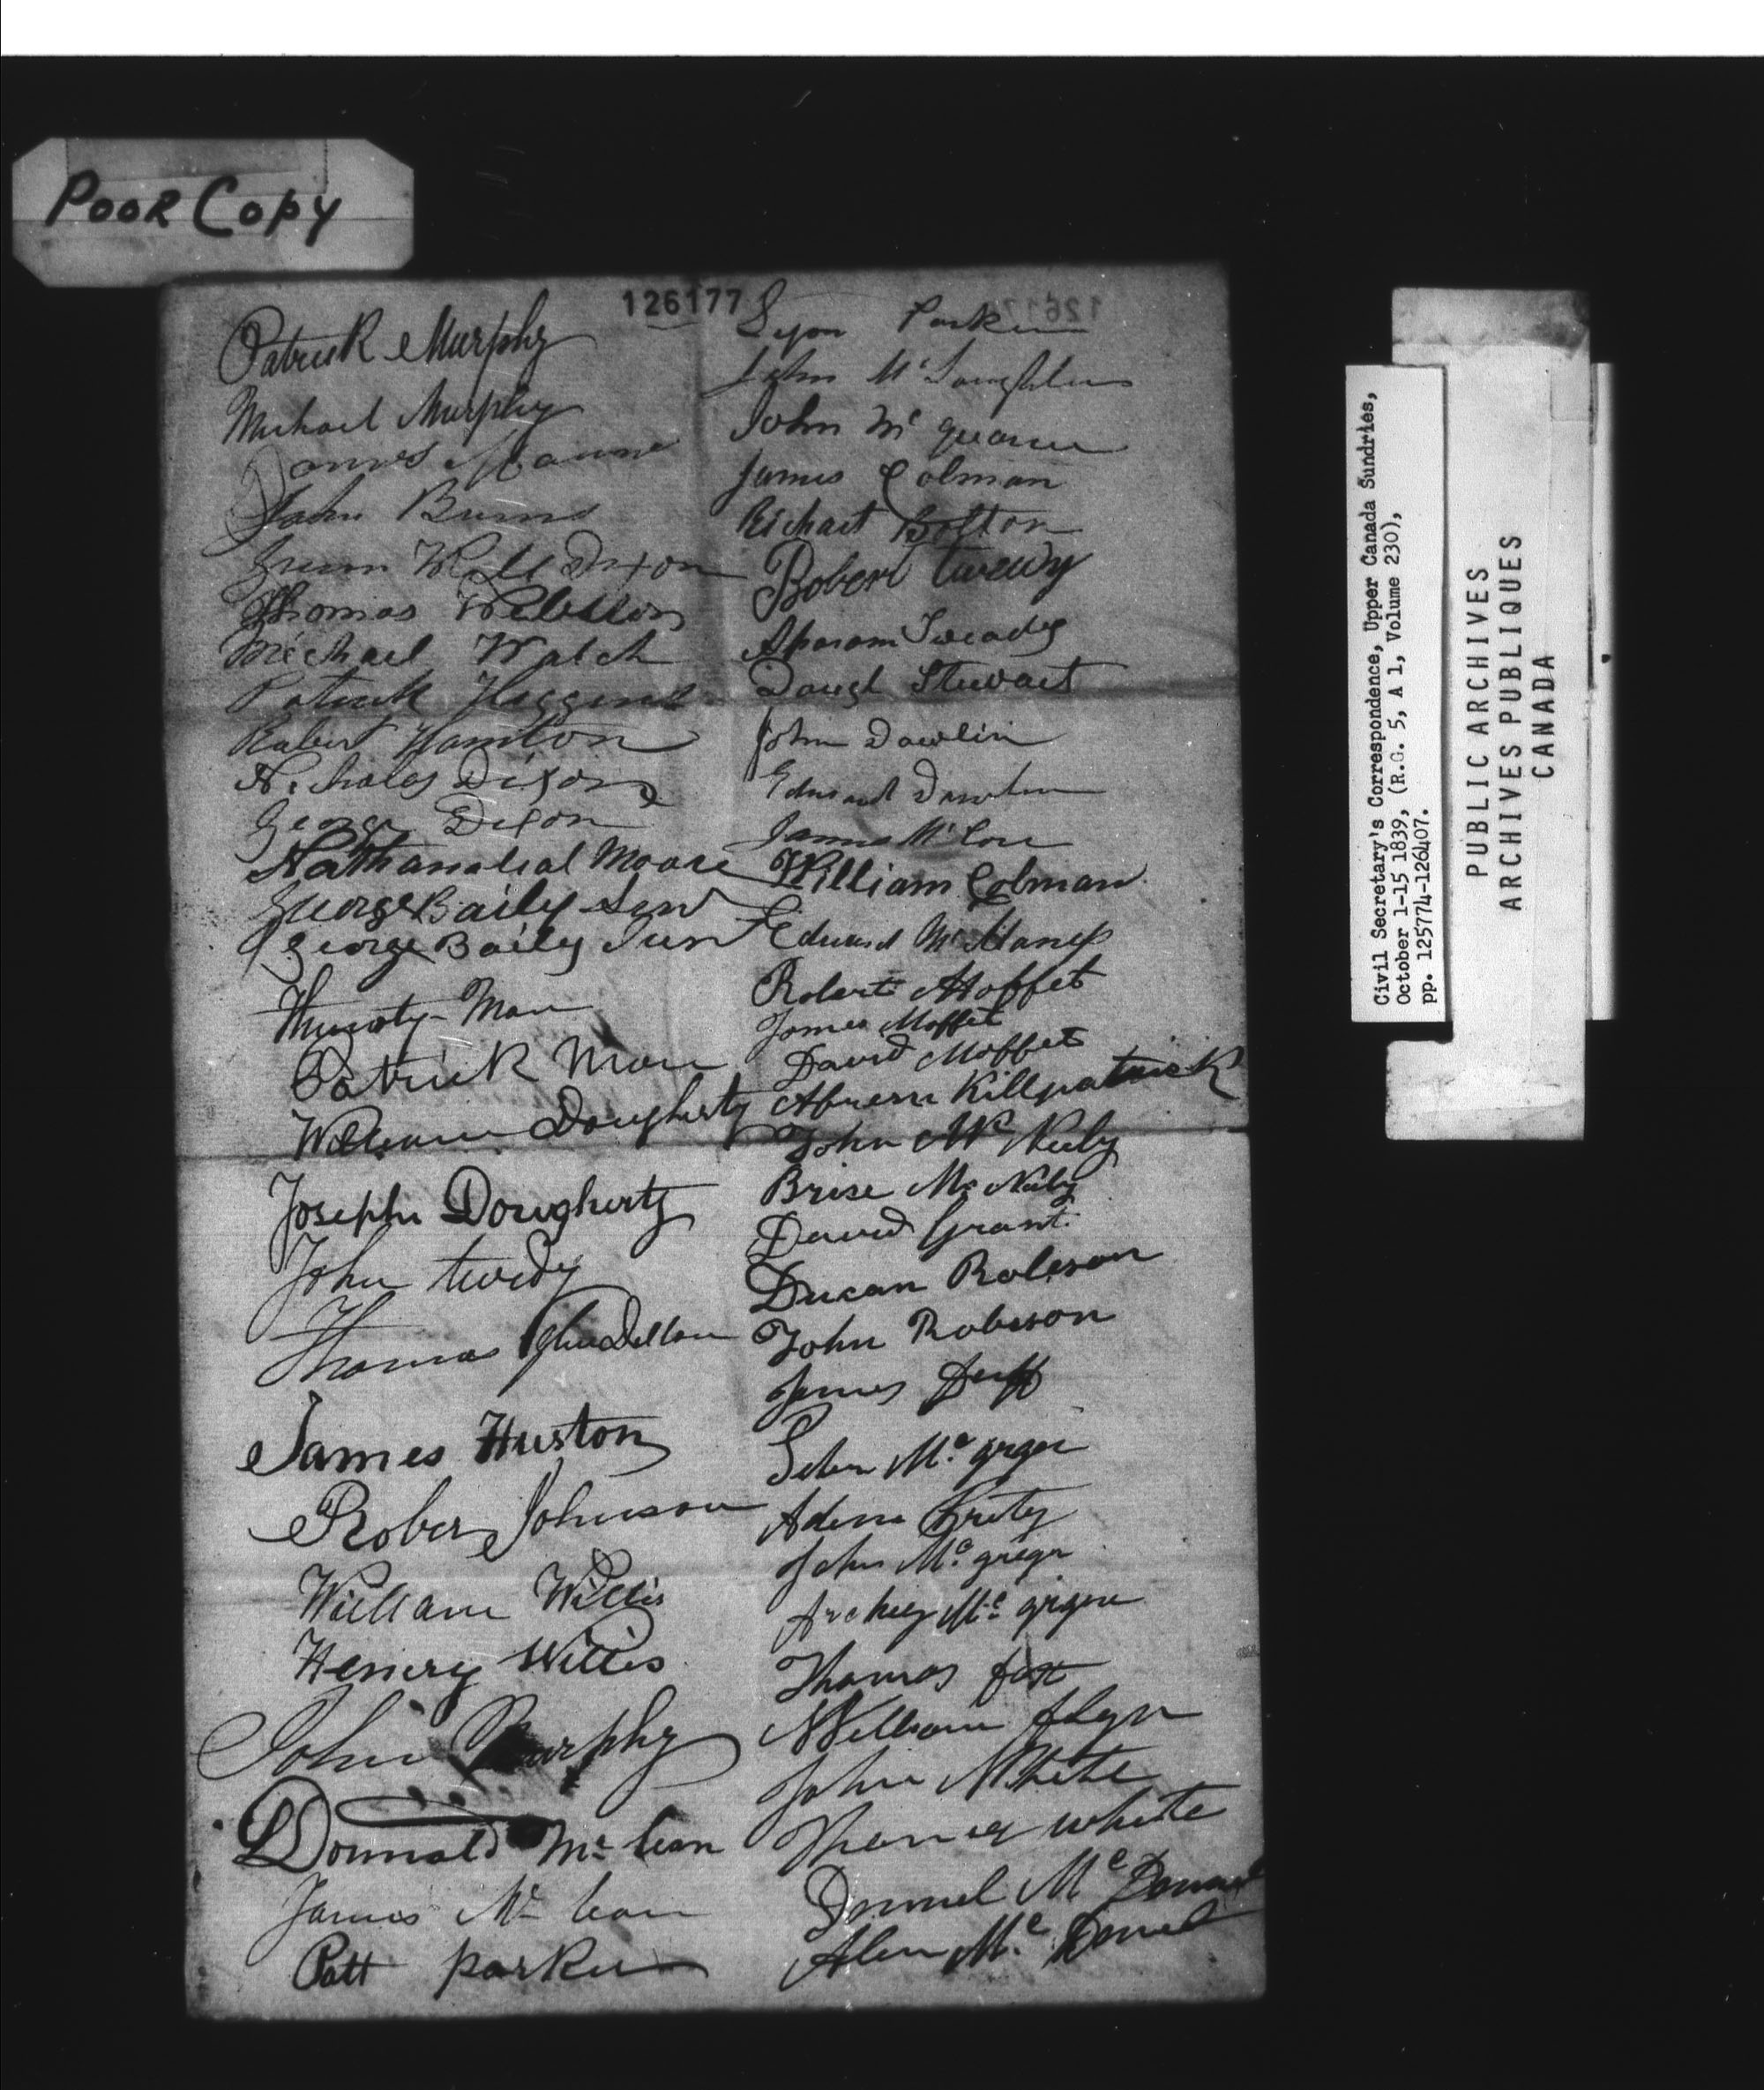 POOR COPY
126177
Patrick Murphy
Michael Murphy
James
John Burns
Dixon
Thomas
Michael Walch
Patrick Higgins
Robert Hamton
Nicholas Dixon
George Dixon
Nathanaleal Moore
George Baily Senr
George Baily Junr
Patrick
William Dougherty
Joseph Dougherty
John twedy
Thomas
James Huston
Rober Johnson
William Willis
Henery Willis
John Murphy
Donnald Mc lean
James Mc lean
Patt parker
Parker
John McLaughlin
John Mc
James Colman
Richart Bolton
Robert twedy
Sweady
Stewart
John Dowlin
Edward Dowlin
James Mc
William Colman
Edward Mc
Robert Moffet
James Moffet
David Moffet
Killpatrick
John Mc Neely
Brise Mc Neely
David Grant
Ducan Robison
John Robison
James Duff
Mc
Adam
John Mc gregor
Archey Mc
Thomas fox
William
John White
white
Donnel Mc Donnel
Alen Mc Donnel
Civil Secretary's Correspondence, Upper Canada Sundries,
October 1-15 1839, (R.G. 5, A 1, Volume 230),
pp. 125774-126407.
PUBLIC ARCHIVES
ARCHIVES PUBLIQUES
CANADA